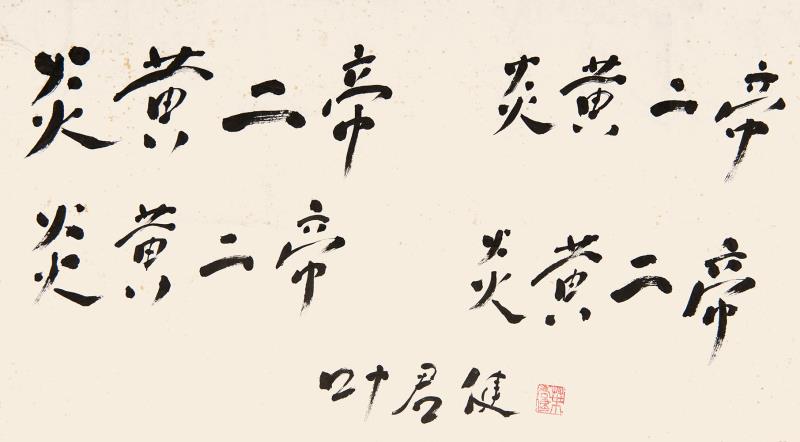 炎黄二帝 炎黄二帝
炎黄二帝 炎黄二帝
叶君健